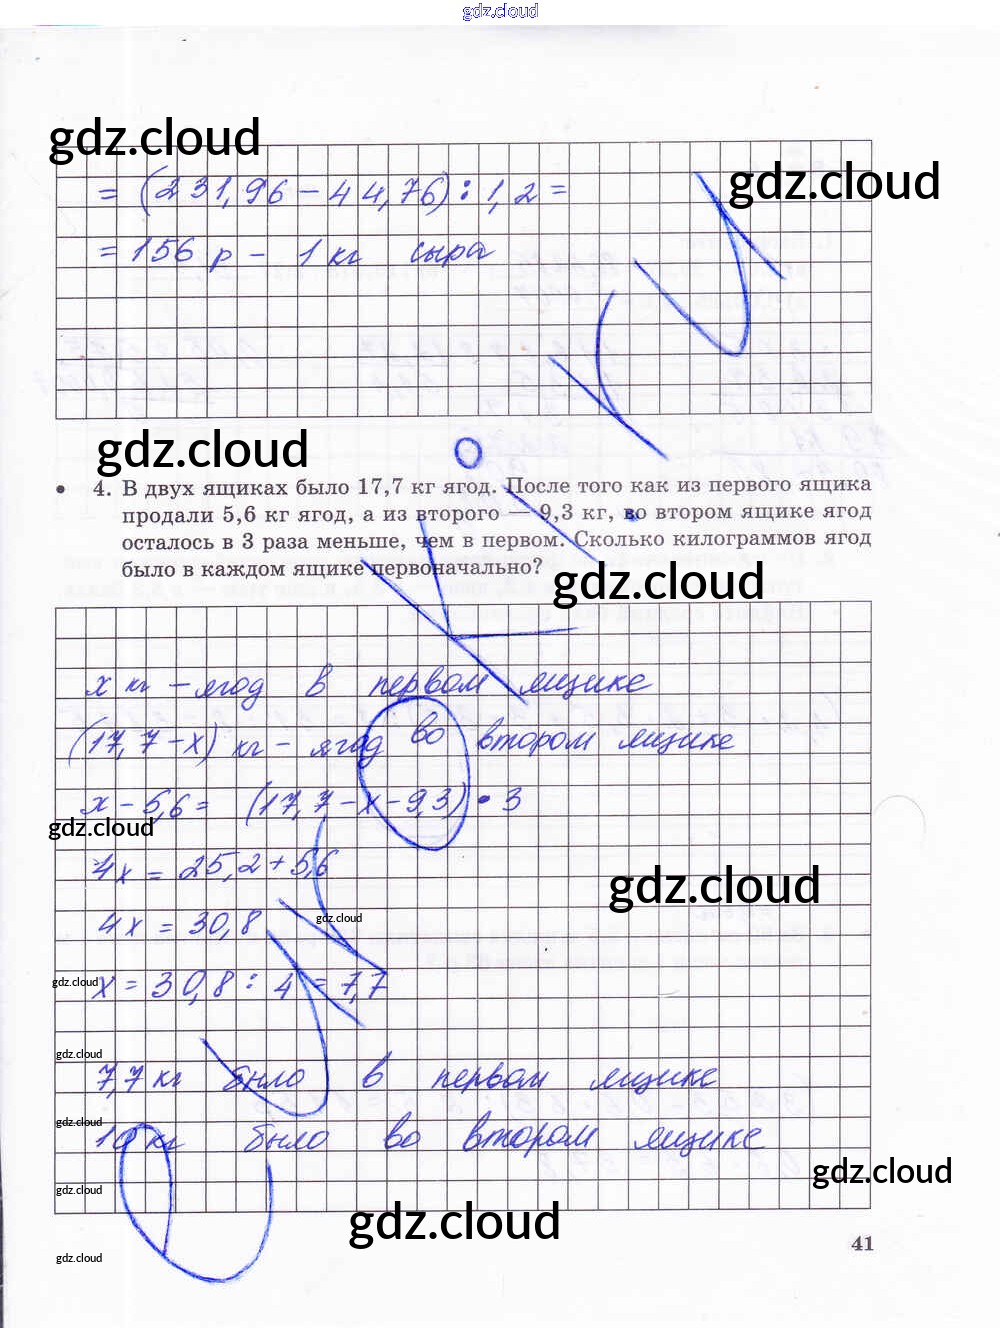 gdz.cloud
gdz.cloud
gdz.cloud
= (231,96 – 44,76) : 1,2 =
= 156 р – 1 кг сыра
gdz.cloud
4. В двух ящиках было 17,7 кг ягод. После того как из первого ящика
продали 5,6 кг ягод, а из второго — 9,3 кг, во втором ящике ягод
осталось в 3 раза меньше, чем в первом. Сколько килограммов ягод
было в каждом ящике первоначально?
gdz.cloud
x кг – ягод в первом ящике
(17,7 – x) кг – ягод во втором ящике
x – 5,6 = (17,7 – x – 9,3) • 3
gdz.cloud
4x = 25,2 + 5,6
gdz.cloud
4x = 30,8
gdz.cloud
x = 30,8 : 4 = 7,7
gdz.cloud
gdz.cloud
7,7 кг было в первом ящике
gdz.cloud
10 кг было во втором ящике
gdz.cloud
gdz.cloud
gdz.cloud
41
gdz.cloud